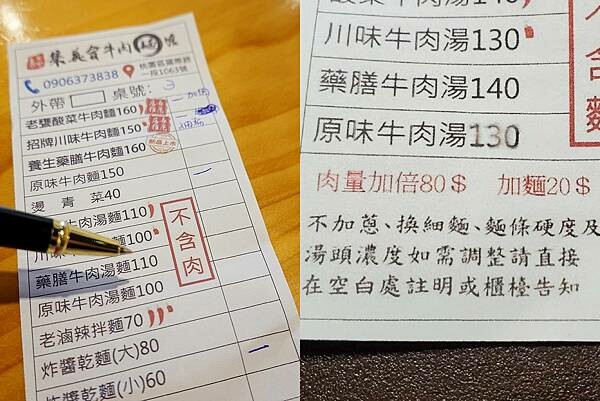 聚義會牛肉麵館
0906373838 桃園區國際路
一段1063號
外帶 桌號: 3
老壜酸菜牛肉麵160 一 加倍
招牌川味牛肉麵150
養生藥膳牛肉麵160 新品上市
原味牛肉麵150 一
燙 青 菜40
牛肉湯麵110
川味牛肉湯麵100
藥膳牛肉湯麵110
原味牛肉湯麵100
不含肉
老滷辣拌麵70
炸醬乾麵(大)80 一
炸醬乾麵(小)60
酸菜牛肉湯140
川味牛肉湯130
藥膳牛肉湯140
原味牛肉湯130
不含麵
肉量加倍80$ 加麵20$
不加蔥、換細麵、麵條硬度及
湯頭濃度如需調整請直接
在空白處註明或櫃檯告知